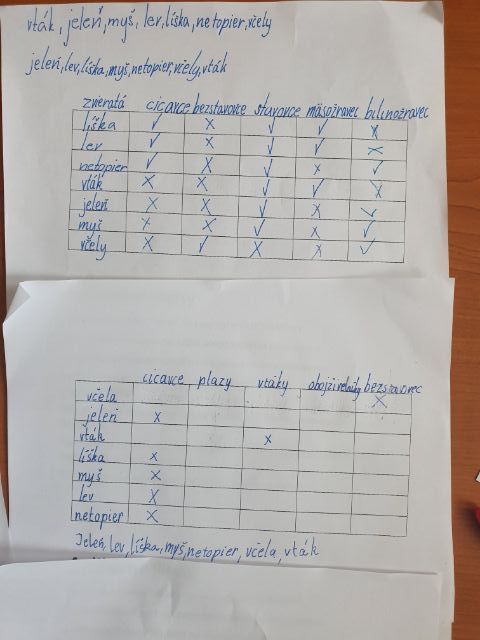 vták, jeleň, myš, lev, líška, netopier, včely
jeleň, lev, líška, myš, netopier, včely, vták
zvieratá cicavce bezstavovce stavovce mäsožravec bilinožravec
líška ✓ x ✓ ✓ x
lev ✓ x ✓ ✓ x
netopier ✓ x ✓ x ✓
vták x x ✓ ✓ x
jeleň x x ✓ x ✓
myš x x ✓ x ✓
včely x ✓ x x ✓
cicavce plazy vtáky obojživelníky bezstavovec
včela x
jeleň x
vták x
líška x
myš x
lev x
netopier x
Jeleň, lev, líška, myš, netopier, včela, vták